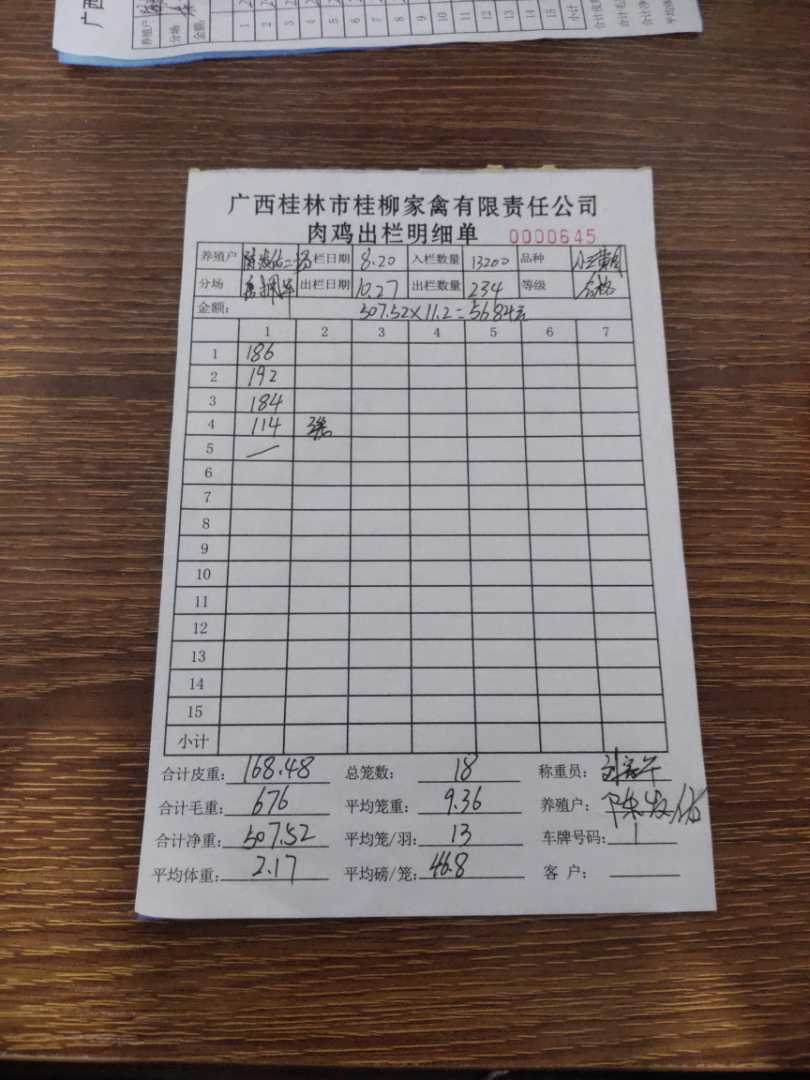 广西
养殖户
分场
金额:
1 2 3 4 5 6 7 8 9 10 11 12 13 14 15 小计
广西桂林市桂柳家禽有限责任公司
肉鸡出栏明细单 0000645
养殖户 栏日期 8.20 入栏数量 13200 品种
分场 出栏日期 10.27 出栏数量 234 等级 合格
金额: 507.52×11.2=5684元
1 2 3 4 5 6 7
1 186
2 192
3 184
4 114
5 —
6
7
8
9
10
11
12
13
14
15
小计
合计皮重: 168.48 总笼数: 18 称重员:
合计毛重: 676 平均笼重: 9.36 养殖户:
合计净重: 507.52 平均笼/羽: 13 车牌号码:
平均体重: 2.17 平均磅/笼: 46.8 客户: